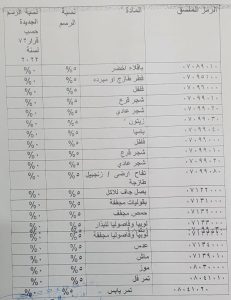 الرمز المنسق المادة نسبة الرسم نسبة الرسم الجديدة حسب قرار ٧٢ لسنة ٢٠٢٢
٠٧٠٨٩٠١٠ باقلاء اخضر ٥% ٠%
٠٧٠٩٥١٠٠ فطر طازج او مبرده ٥% ٠%
٠٧٠٩٦٠٠٠ فلفل ٥% ٠%
٠٧٠٩٩٠١٠ شجر قرع ٥% ٠%
٠٧٠٩٩٠٢٠ شجر عادي ٥% ٠%
٠٧٠٩٩٠٣٠ زيتون ٥% ٠%
٠٧٠٩٩٠٤٠ باميا ٥% ٠%
٠٧٠٩٦٠٠٠ فلفل ٥% ٠%
٠٧٠٩٩٠١٠ شجر قرع ٥% ٠%
٠٧٠٩٩٠٢٠ شجر عادي ٥% ٠%
٠٧٠٩٩٠٨٠ تفاح ارضي / زنجبيل طازجة ٥% ٠%
٠٧١٢٢٠٠٠ بصل جاف للاكل ٥% ٠%
٠٧١٣١٠٠٠ بقوليات مجففة ٥% ٠%
٠٧١٣٢٠٠٠ حمص مجفف ٥% ٠%
لوبيا وفاصوليا للبذار ٥% ٠%
لوبيا وفاصوليا مجففة ٥% ٠%
٠٧١٣٤٠٠٠ عدس ٥% ٠%
ماش ٥% ٠%
٠٨٠٣٠٠٠٠ موز ٥% ٠%
٠٨٠٤١٠١٠ تمر فل ٥% ٠%
٠٨٠٤١٠٢٠ تمر يابس ٥% ٠%